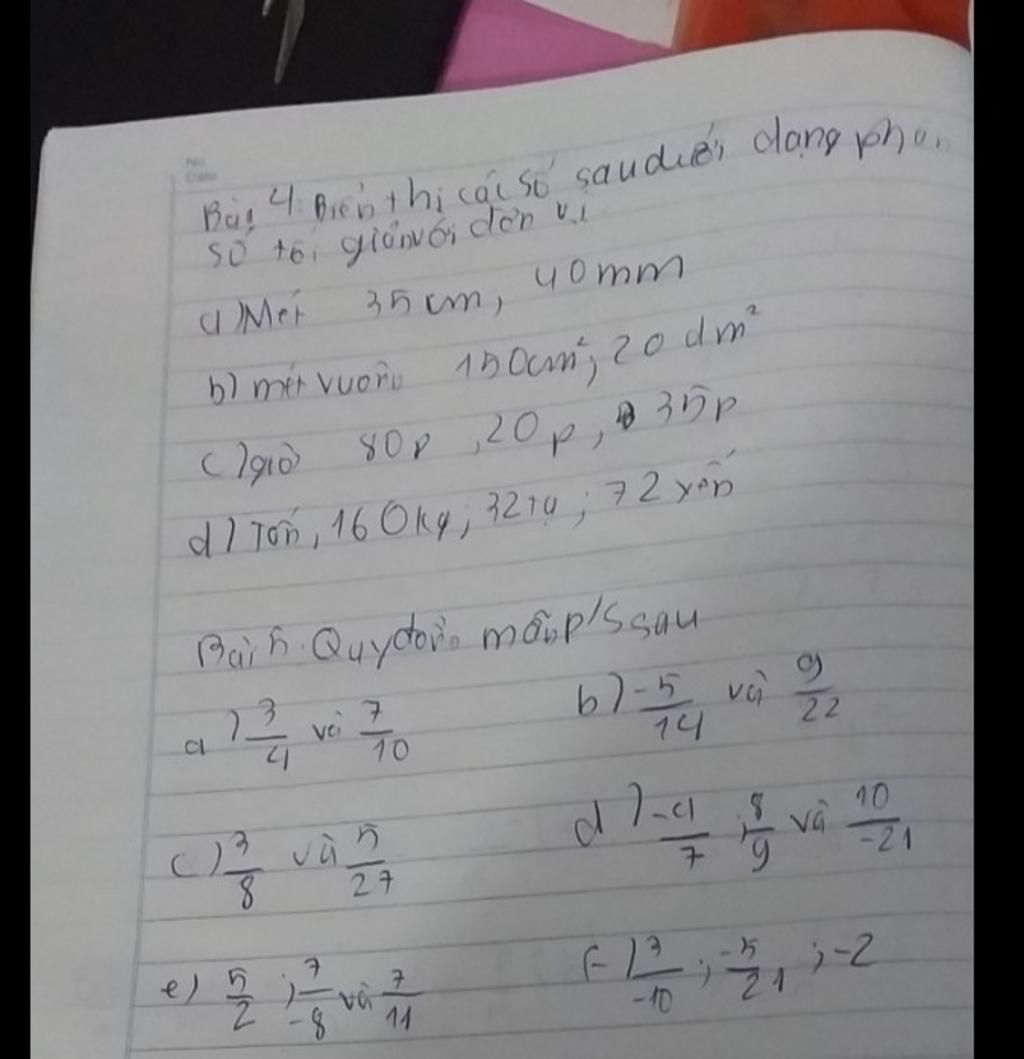 No.
Date
Bài 4: Biển thị các số sau dưới dạng phân
số tối giản với đơn vị
a) Mét 35cm, 40mm
b) mét vuông 150cm², 20dm²
c) giờ 80p, 20p, 35p
d) Tấn, 160kg; 32 tạ; 72 yến
Bài 5. Quy đồng mẫu p/s sau
a) 3/4 và 7/10 b) -5/14 và 9/22
c) 3/8 và 5/27 d) -4/7; 8/9 và 10/-21
e) 5/2; 7/-8 và 7/11 f) 3/-10; -5/21; -2